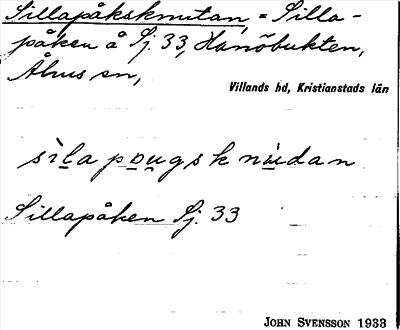 Sillapåksknutan, = Silla-
påken å Sj. 33, Hanöbukten,
Åhus sn,
Villands hd, Kristianstads län
sìl̠a po̠u̠gsk nu̠̇dan
Sillapåken Sj. 33
JOHN SVENSSON 1933